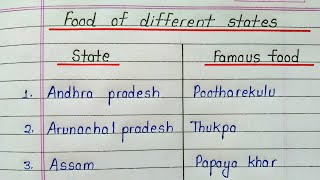 Food of different states
State Famous food
1. Andhra pradesh Pootharekulu
2. Arunachal pradesh Thukpa
3. Assam Papaya khar